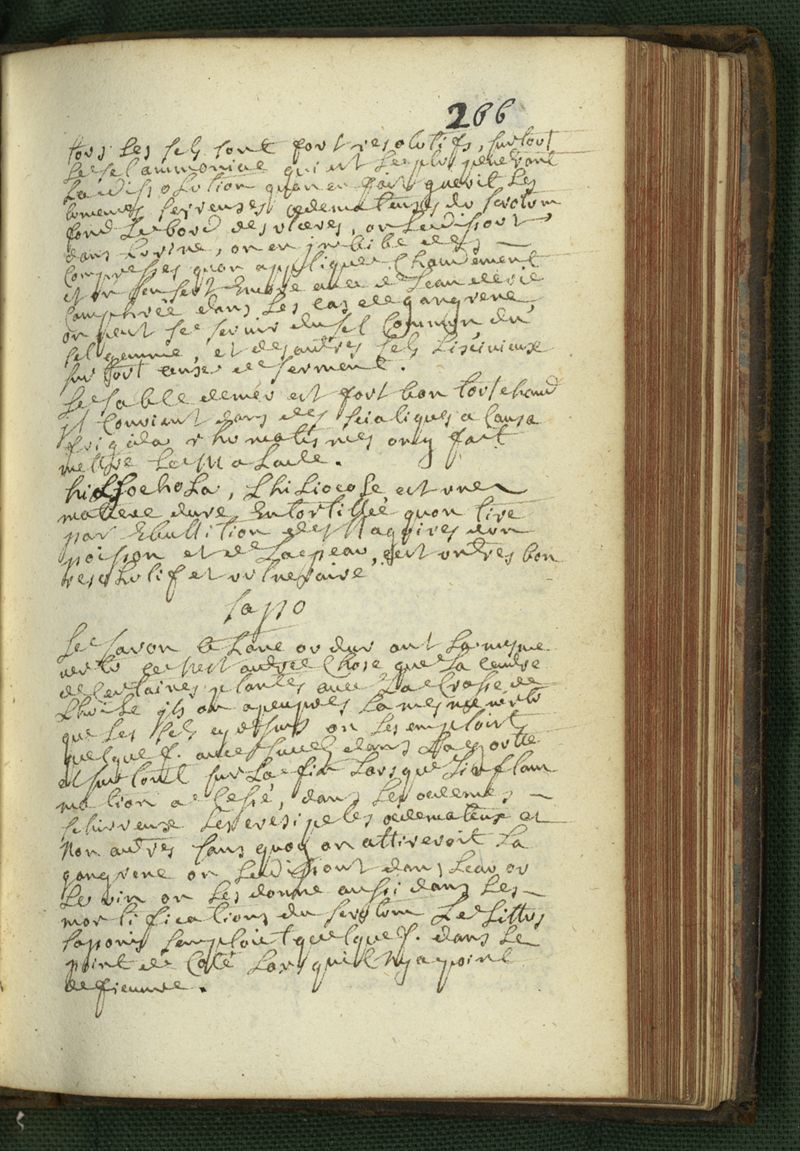 266
tors les sels sont fort resolutifs, surtout
le sel ammoniac qui est le plus penetrant
La dissolution quon en fait guerit les
tumeurs sereuses œdemateuses du scrotum
fond le bord des ulceres, on le dissout
dans lurine, on en imbibe des
compresses quon applique chaudement
et on sen sert encore avec de leau de vie
camphrée dans les cas de gangrene
on peut se servir du sel commun du
sel gemme, et des autres sels lixivieux
sur tout de serment.
Le sable de mer est fort bon tout chaud
il convient dans des sciatiques a causa
frigida rhumatismes on y fait
mettre le malade.
hictiochola, Lhictiocole est une
matiere dure entortillée quon tire
par ebullition des nagoires dun
poisson et de la peau, cest un tres bon
resolutif et vulneraire
sapo
Le savon blanc ou dur ont la mesme
vertu ce nest autre chose que la cendre
de certaines plantes avec la crasse de
Lhuile ils on apeupres la mesme vertu
que les sels cy dessus on les emploit
quelque f. avec succez dans la goutte
et sur tout sur la fin lorsque linflam
mation a cessé, dans les œdemes
schirreux les eresipeles œdemateux et
non autres sans quoy on attireroit la
gangrene on le dissout dans leau ou
le vin on les donne aussi dans les
mortifications du scrotum Le
saponis semploit quelque f. dans le
point de coté lorsquil ny a point
de fievre.